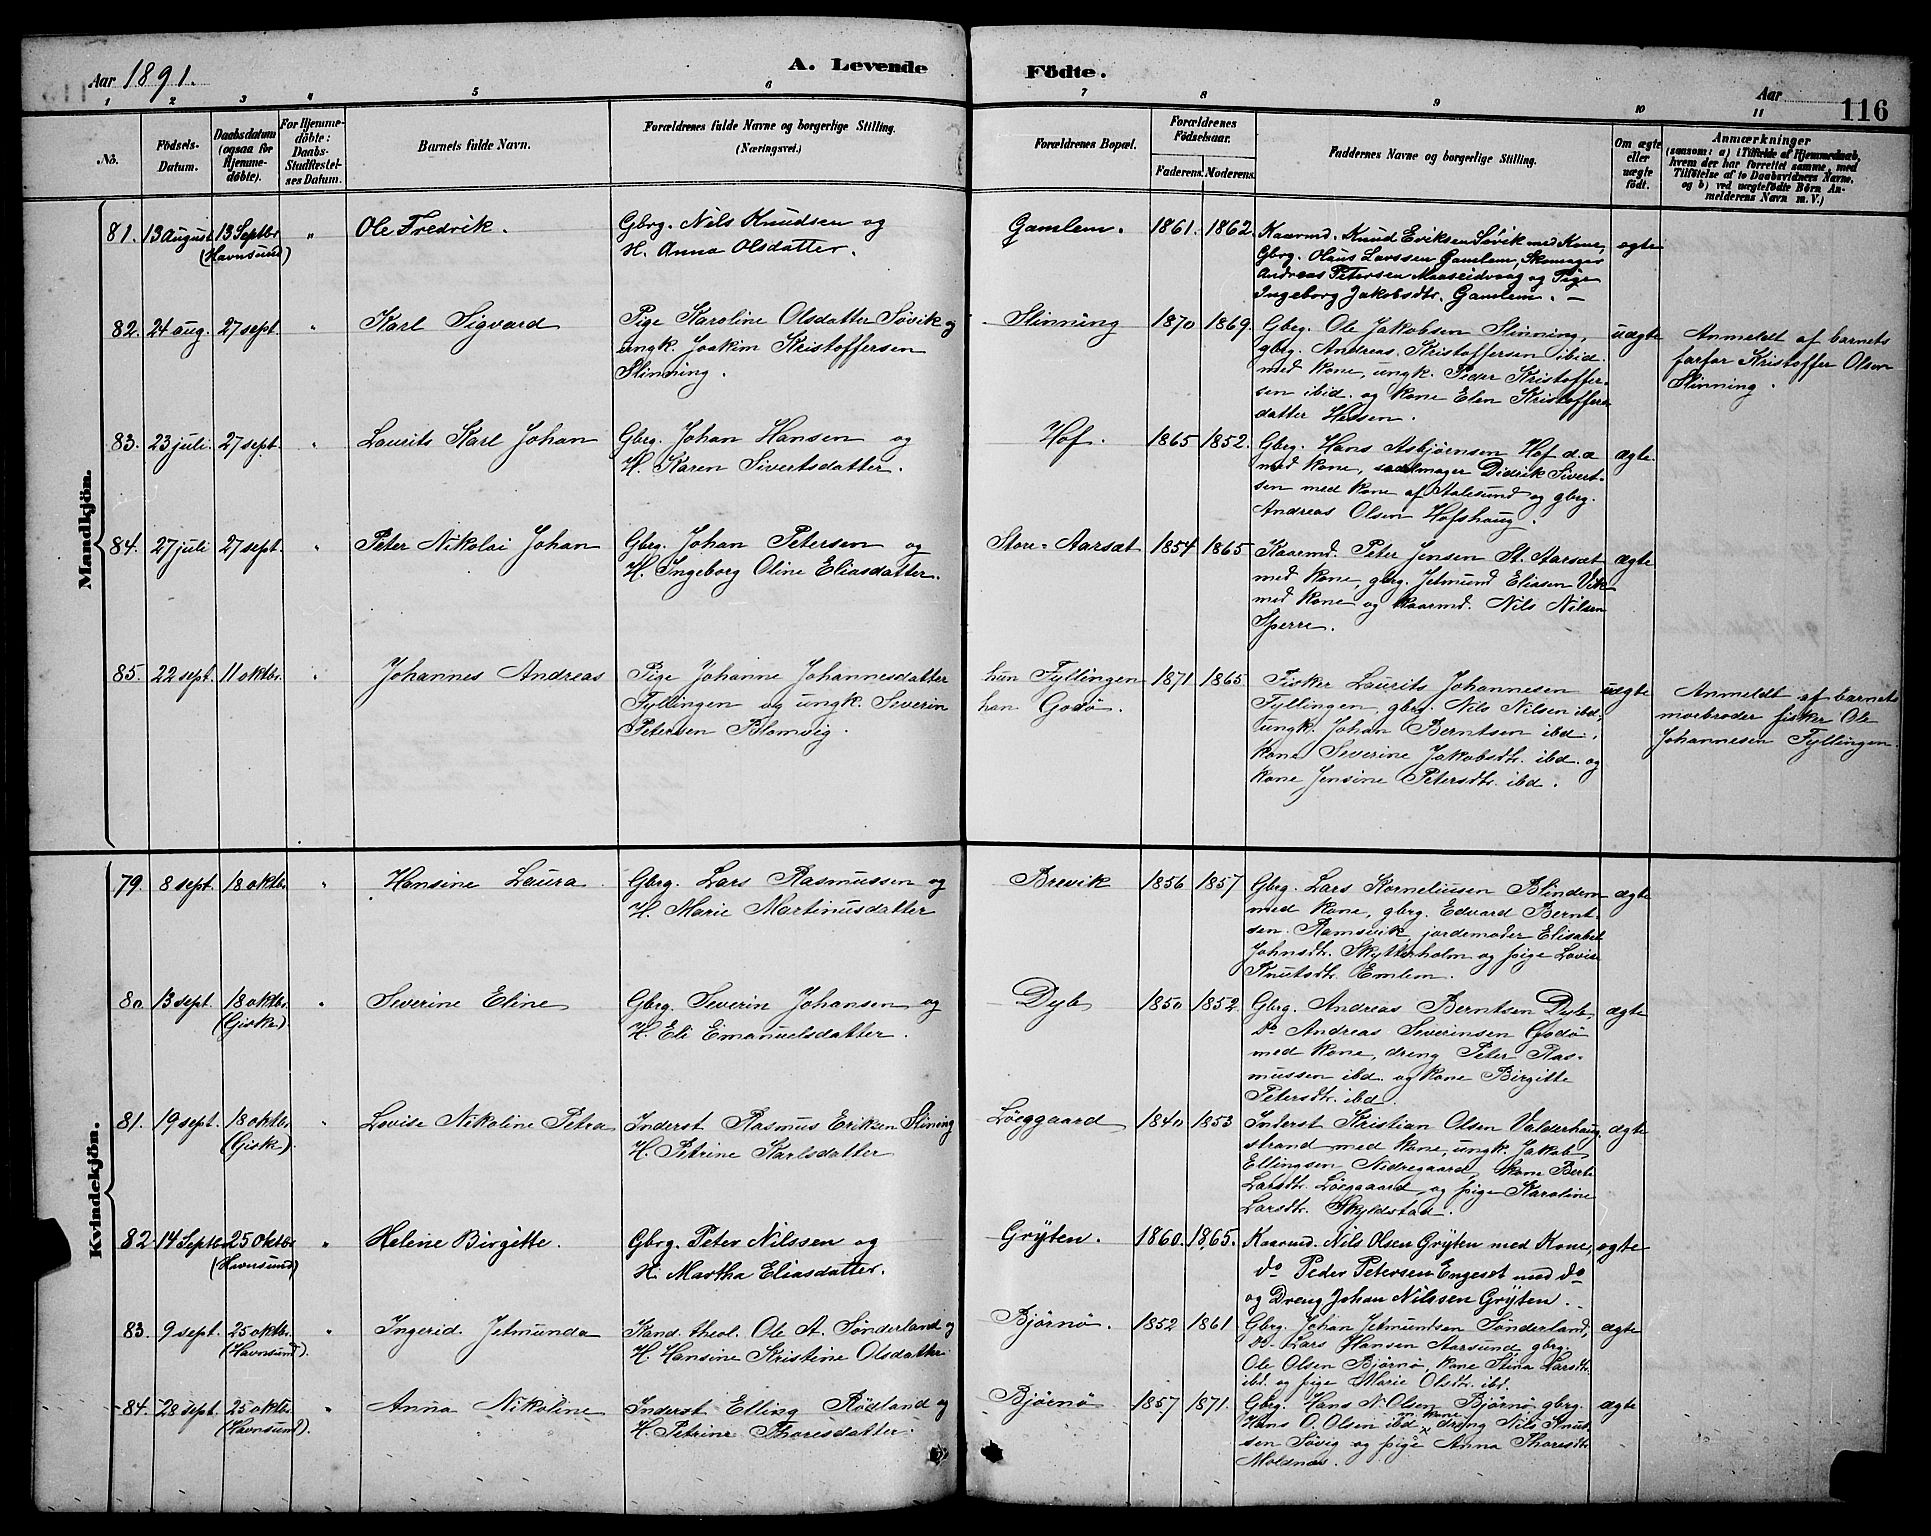 Aar 1891.
A. Levende Födte.
Aar
116
1 2 3 4 5 6 7 8 9 10 11
No.
Födsels-Datum.
Daabsdatum (ogsaa for Hjemme-döbte).
For Hjemme-döbte: Daabs-Stadfæstel-ses Datum.
Barnets fulde Navn.
Forældrenes fulde Navne og borgerlige Stilling.
(Næringsvei.)
Forældrenes Bopæl.
Forældrenes Födselsaar.
Faderens. Moderens.
Faddernes Navne og borgerlige Stilling.
Om ægte eller uægte født.
Anmærkninger
(saasom: a) i Tilfælde af Hjemmedaab,
hvem der har forrettet samme, med
Tilføielse af to Daabsvidners Navne,
og b) ved uægtefødte Börn An-
melderens Navn m. V.)
Mandkjön.
81. 13 August 13 Septbr (Havnsund) " Ole Fredrik.
Gbrg. Nils Knudsen og
H. Anna Olsdatter.
Gamlem. 1861. 1862.
Kaarmd. Knud Eriksen Søvik med Kone,
Gbrg. Olaus Larssen Gamlem, Skomager
Andreas Petersen Maaseidvaag og Pige
Ingeborg Jakobsdtr. Gamlem. -
ægte
82. 24 aug. 27 sept. " Karl Sigvard
Pige Karoline Olsdatter Søvik og
ungk. Joakim Kristoffersen
Slinning.
Slinning 1870 1869.
Gbrg. Ole Jakobsen Slinning,
gbrg. Andreas Kristoffersen ibid.
med kone, ungk. Peder Kristoffer-
sen ibid. og kone Elen Kristoffers-
datter Hessen.
uægte
Anmeldt af barnets
farfar Kristoffer Olsen
Slinning.
83. 23 juli 27 sept. " Laurits Karl Johan
Gbrg. Johan Hansen og
H. Karen Sivertsdatter.
Hof. 1865 1852.
Gbrg. Hans Asbjørnsen Hof d.æ
med kone, sadelmager Didrik Sivert-
sen med kone af Aalesund og gbrg.
Andreas Olsen Hofshaug.
ægte.
84. 27 juli 27 sept. " Peter Nikolai Johan
Gbrg. Johan Petersen og
H. Ingeborg Oline Eliasdatter.
Store-Aarsæt 1854 1865
Kaarmd. Peter Jensen St. Aarsæt
med kone, gbrg. Jetmund Eliasen Vik
med kone og kaarmd. Nils Nilsen
Sperre.
ægte
85. 22 sept. 11 oktbr. " Johannes Andreas
Pige Johanne Johannesdatter
Fyllingen og ungk. Severin
Petersen Blomvig.
hun Fyllingen
han Godø.
1871 1865
Fisker Laurits Johannesen
Fyllingen, gbrg. Nils Nilsen ibd.,
ungk. Johan Berntsen ibd.,
kone Severine Jakobsdtr. ibd. og
kone Jensine Petersdtr. ibd.
uægte
Anmeldt af barnets
morbroder fisker Ole
Johannesen Fyllingen.
Kvindekjön.
79. 8 sept. 18 oktbr. " Hansine Laura
Gbrg. Lars Rasmussen og
H. Marie Martinusdatter
Brevik 1856 1857
Gbrg. Lars Korneliusen Blindem
med kone, gbrg. Edvard Bernt-
sen Ramsvik, jordemoder Elisabet
Johnsdtr. Skytterholm og pige Lovise
Knutsdtr. Emlem.
ægte
80 13 sept. 18 oktbr. (Giske) " Severine Eline
Gbrg. Severin Johansen og
H. Eli Emanuelsdatter.
Dyb 1850 1852.
Gbrg. Andreas Berntsen Dyb,
do Andreas Severinsen Godø
med kone, dreng Peter Ras-
mussen ibd. og kone Birgitte
Petersdtr. ibd.
ægte
81. 19 sept. 18 oktbr. (Giske). " Lovise Nikoline Petra
Inderst Rasmus Eriksen Slining
H. Petrine Karlsdatter
Løeggaard 1840 1853
Inderst Kristian Olsen Valderhaug-
strand med kone, ungk. Jakob
Ellingsen Nedregaard, kone Berte
Larsdtr. Løeggaard og pige Karoline
Larsdtr. Skyldstad.
ægte
82 14 Septbr 25 Oktbr (Havnsund) " Helene Birgitte.
Gbrg. Peter Nilssen og
H. Martha Eliasdatter.
Grÿten. 1860. 1865.
Kaarmd. Nils Olsen Grÿten med Kone,
do Peder Petersen Engeset med do
og Dreng Johan Nilssen Grÿten.
ægte
83. 9 sept. 25 oktbr. (Havnsund). " Ingerid Jetmunda
Kand. theol. Ole A. Sønderland og
H. Hansine Kristine Olsdatter.
Bjørnø. 1852 1861
Gbrg. Johan Jetmundsen Sønderland,
do Lars Hansen Aarsund, gbrg.
Ole Olsen Bjørnø, kone Stina Larsdtr.
ibd. og pige Marie Olsdtr. ibd.
ægte
84. 28 sept. 25 oktbr. (Havnsund). " Anna Nikoline
Inderst Elling Rødland og
H. Petrine Thoresdatter.
Bjørnø 1857 1871.
Gbrg. Hans N. Olsen Bjørnø, gbrg.
Hans O. Olsen ibd. m. kone, dreng Nils Knut-
sen Søvig og pige Anna Thoresdtr.
Moldnæs.
ægte